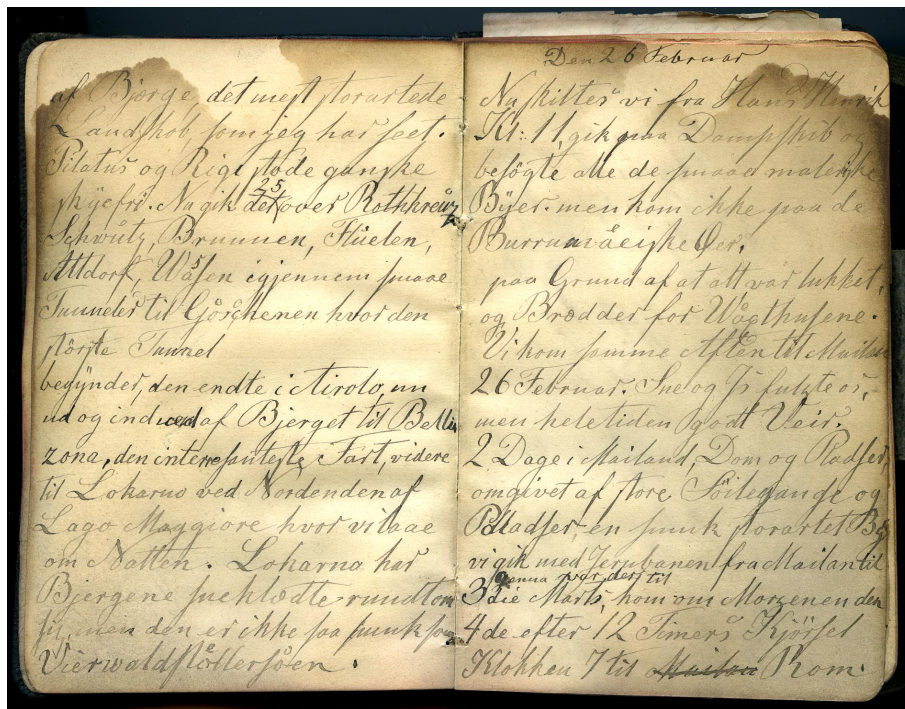 af Bjerge, det mest storartede
Landskab, som jeg har seet.
Pilatus og Rigi stode ganske
skyefri. Nu gik det 25 over Rothkreuz
Schwütz, Brunnen, Flüelen,
Altdorf, Wasen igjennem smaae
Tunneler til Göschenen hvor den
störste Tunnel
begynder, den endte i Airolo, nu
ud og ind ved af Bjerget til Bellin
zona, den interessanteste Fart, videre
til Lokarno ved Nordenden af
Lago Maggiore hvor vi laae
om Natten. Lokarno har
Bjergene sneeklædte rundt om
sig, men den er ikke saa smuk som
Vierwaldstöttersöen.
Den 26 Februar
Nu skiltes vi fra Hans Henrik
Kl: 11, gik paa Dampskib og
besögte alle de smaae maleriske
Byer. men kom ikke paa de
Burrumæiske Øer.
paa Grund af at alt var lukket,
og Brædder for Wæxthusene.
Vi kom samme Aften til Mailan
26 Februar. Sne og Is fulgte os,
men hele tiden godt Veir.
2 Dage i Mailand, Dom og Pladser,
omgivet af store Söilegande og
Paladser, en smuk storartet By
vi gik med Jernbanen fra Mailan til
Genua var der til
3die Marts, kom om Morgenen den
4de efter 12 Timers Kjörsel
Klokken 7 til Mailan Rom.